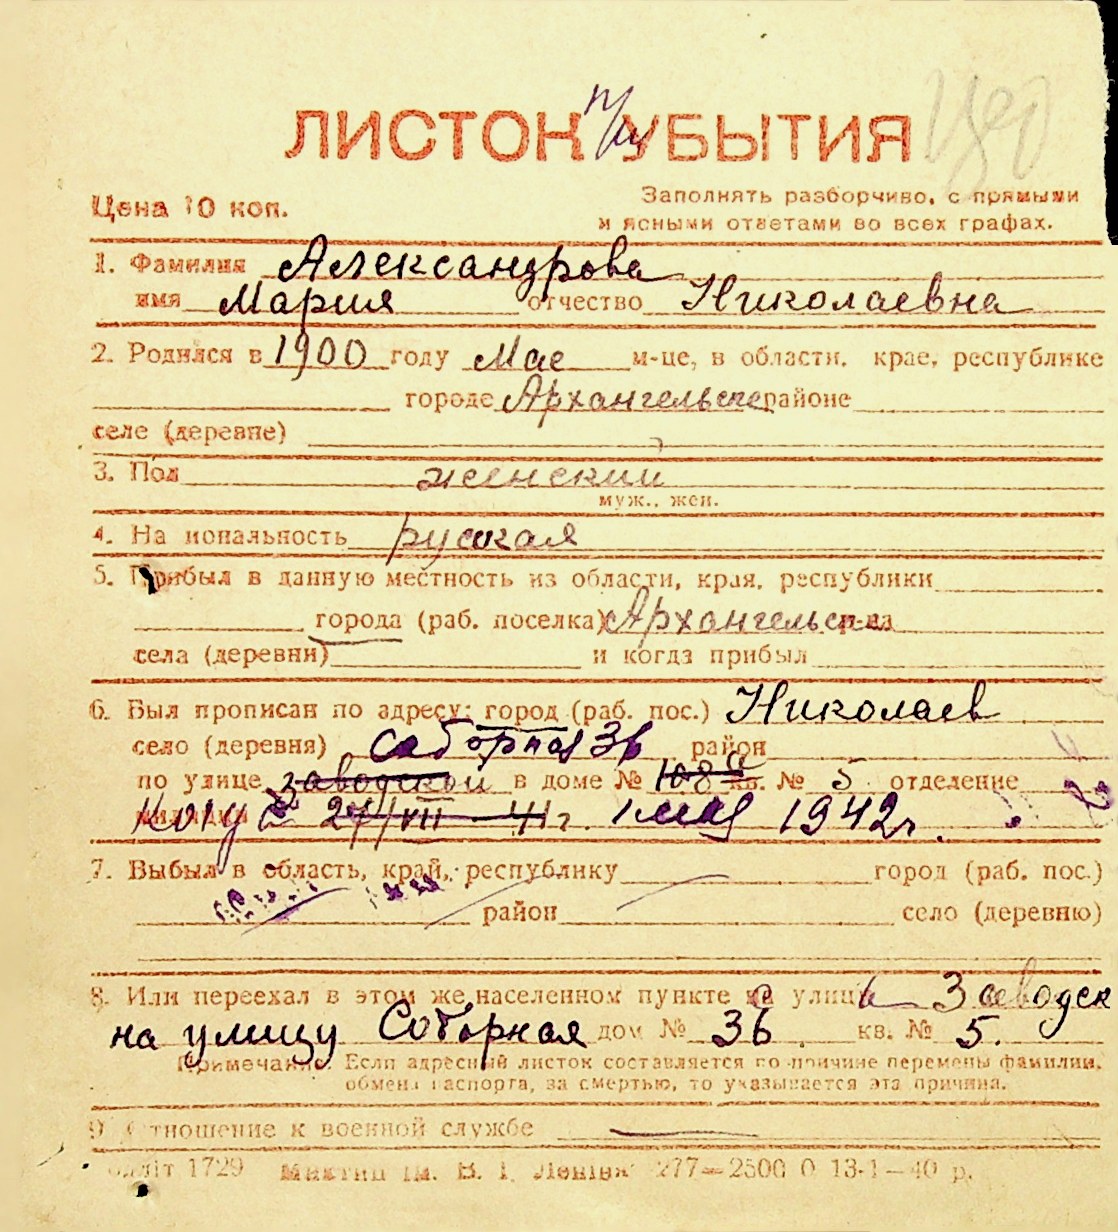 ЛИСТОК УБЫТИЯ
Цена 10 коп.
Заполнять разборчиво, с прямыми
и ясными ответами во всех графах.
1. Фамилия Александрова
имя Мария отчество Николаевна
2. Родился в 1900 году Мае м-це, в области, крае, республике
городе Архангельске районе
селе (деревне)
3. Пол женский
муж., жен.
4. Национальность русская
5. Прибыл в данную местность из области, края, республики
города (раб. поселка) Архангельска
села (деревни) и когда прибыл
6. Был прописан по адресу: город (раб. пос.) Николаев
село (деревня) Соборная 36 район
по улице заводской в доме № 108а кв. № 5 отделение
милиции 27/VII 41 г. 1 мая 1942 г.
7. Выбыл в область, край, республику город (раб. пос.)
район село (деревню)
8. Или переехал в этом же населенном пункте на улицу с Заводск
на улицу Соборная дом № 36 кв. № 5.
Примечание. Если адресный листок составляется по причине перемены фамилии,
обмена паспорта, за смертью, то указывается эта причина.
9. Отношение к военной службе
1729 ім. В. І. Леніна 277—2500 0 13-1—40 р.